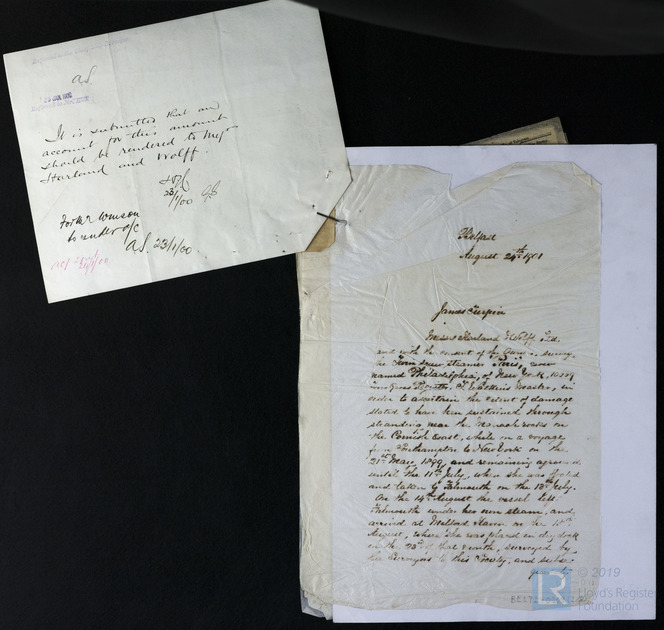 A.S.
It is submitted that an
account for this amount
should be rendered to Messrs
Harland and Wolff.
23/1/00
to render a/c
A.S. 23/1/00.
Belfast
August 24th 1901
James Turpin
Messrs Harland & Wolff Ltd.
and with the consent of the Owners, survey
the Twin Screw steamer Paris, now
named Philadelphia, of New York,
Master, in
order to ascertain the extent of damage
stated to have been sustained through
stranding near the Manacle rocks on
the Cornish Coast, while on a voyage
from Southampton to New York on the
21st May 1899, and remaining aground
until the 11th July, when she was floated
and taken to Falmouth on the 13th July.
On the 14th August the vessel left
Falmouth under her own steam, and
arrived at Milford Haven on the
August, where she was placed in dry dock
on the 23rd of that month, surveyed by
the Surveyors to this Society, and subse-
quently
© 2019
Lloyd's Register
Foundation
LR